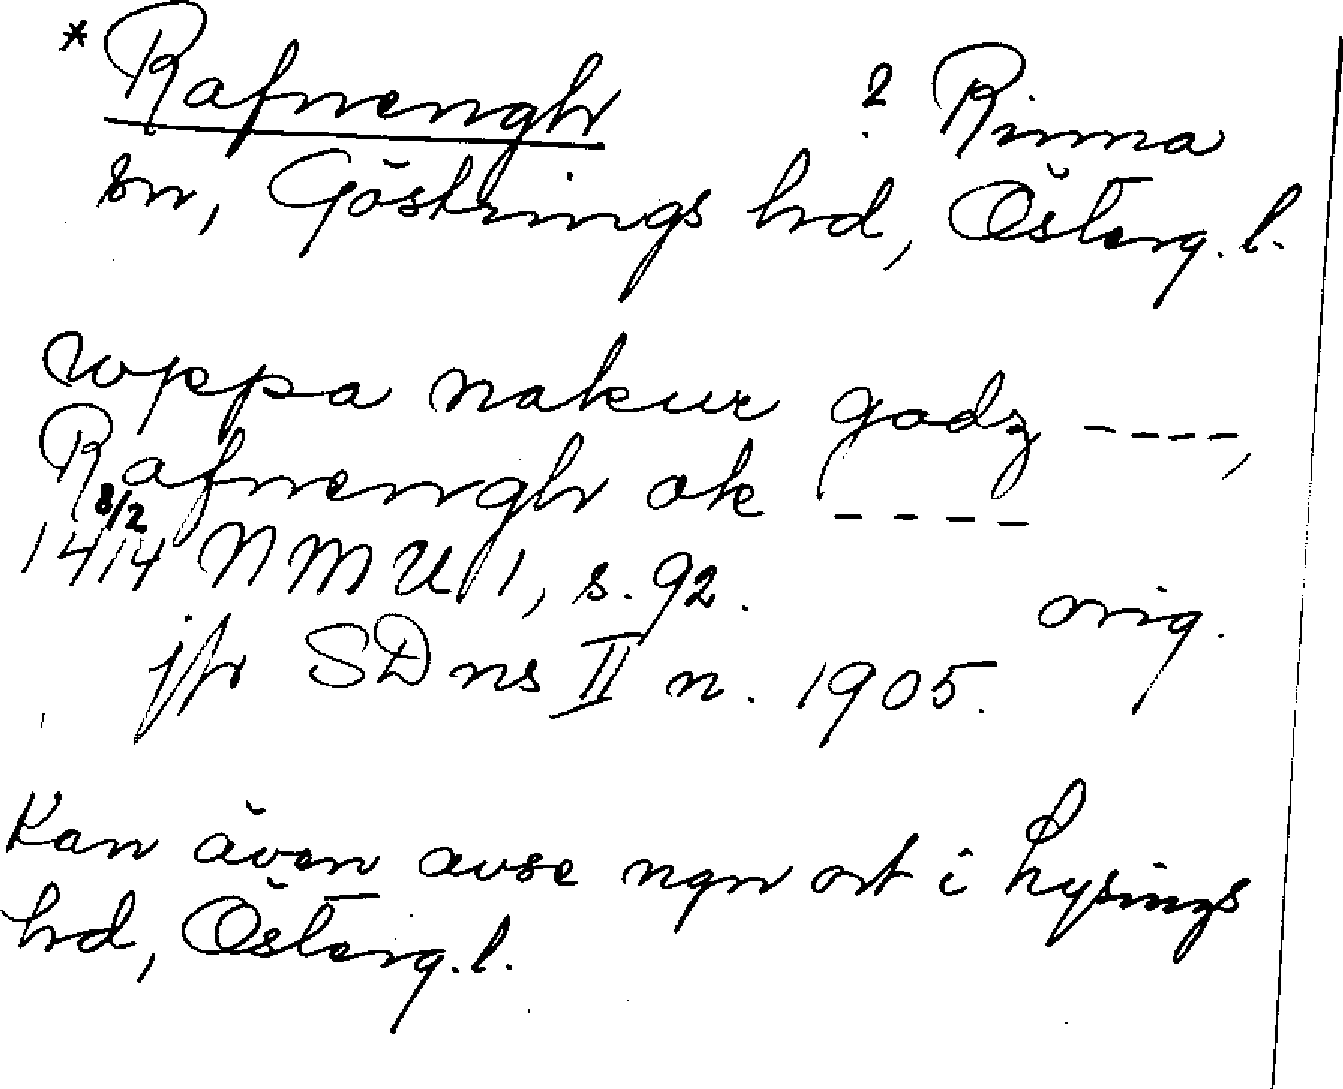 * Rafnengh ? Rinna
sn, Göstrings hd, Österg. l.
wppa nakur godz ----,
Rafnengh ok ----
1414 8/2 NMU 1, s. 92. orig.
jfr SD ns II n. 1905.
Kan även avse ngn ort i Lysings
hd, Österg. l.